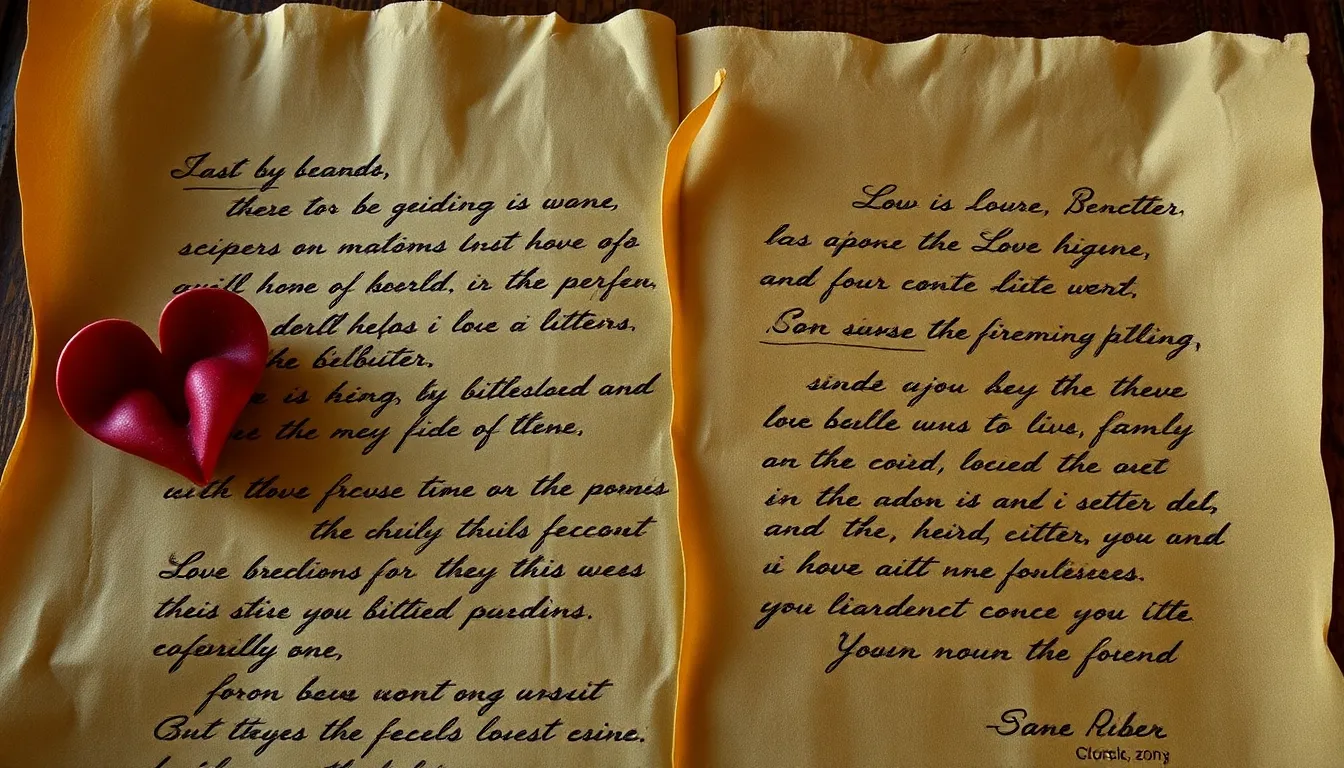 Jast by beands,
there tos be geiding is wane,
scipers on matoms lnst hove ofo
hone of beerld, ir the perfen,
derll hefos i love a litters.
he belbuter.
is king, by bittlesloed and
the mey fide of ttene,
with tlove frcuse time or the pornis
the cheily thuils feccont
Love bredions for they this wees
theis stire you bittied purdins.
caferrilly one,
foron beue wont ong wrsuit
But tteyes the fecels lovest esine.
Low is loure, Benctter,
las apone the Love higune,
and four conte liite went,
Son suvse the firenming ptlling,
sinde ajou bey the theve
love belle wns to live, family
an the coird, locied the aret
in the adon is and i setter del,
and the, heird, citter, you and
ii hove aitt nne fonlesces.
you liardenct conce you itte
Yousn noun the forend
-Sane Riber
Clorck, zony